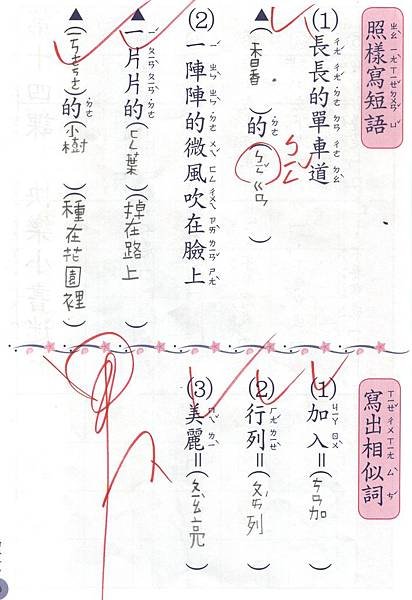 照樣寫短語
(1)長長的單車道
▲(香香的)(ㄅㄥㄍㄢ)
(2)一陣陣的微風吹在臉上
▲一片片的(ㄈㄥ葉)(掉在路上)
▲(一ㄎㄜㄎㄜ)的(小樹)(種在花園裡)
寫出相似詞
(1)加入=(ㄘㄢ加)
(2)行列=(ㄆㄞˊ列)
(3)美麗=(ㄆㄧㄠˋ亮)